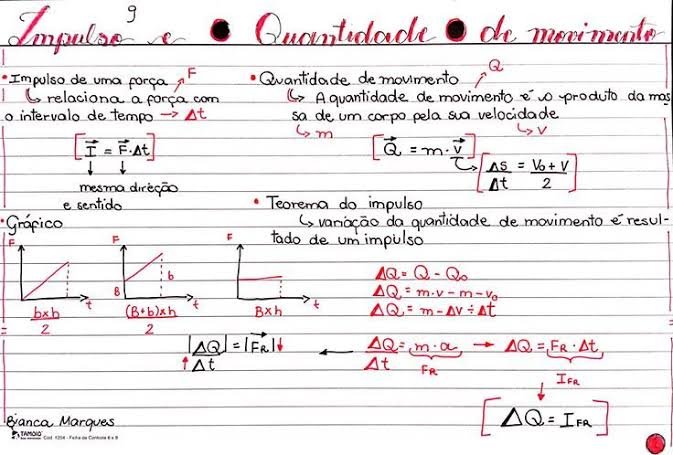 9
Impulso e Quantidade de movimento
• Impulso de uma força F
↳ relaciona a força com
o intervalo de tempo → Δt
[I⃗ = F⃗·Δt]
↓ ↓
mesma direção
e sentido
• Gráfico
F
t
b×h
2
F
B
b
t
(B+b)×h
2
F
t
B×h
• Quantidade de movimento Q
↳ A quantidade de movimento é o produto da mas
sa de um corpo pela sua velocidade
↳ m
↳ v
[Q⃗ = m·v⃗]
[ΔS = V₀ + V
Δt 2]
• Teorema do impulso
↳ variação da quantidade de movimento é resul-
tado de um impulso
ΔQ = Q - Q₀
ΔQ = m·v - m - v₀
ΔQ = m - Δv ÷ Δt
ΔQ = m·a → ΔQ = FR·Δt
Δt FR
↓ IFR
|ΔQ| = |F⃗R|↓
↑Δt
[ΔQ = IFR]
Bianca Marques
TAMOIO
Cod. 1204 - Ficha de Controle 6 x 9